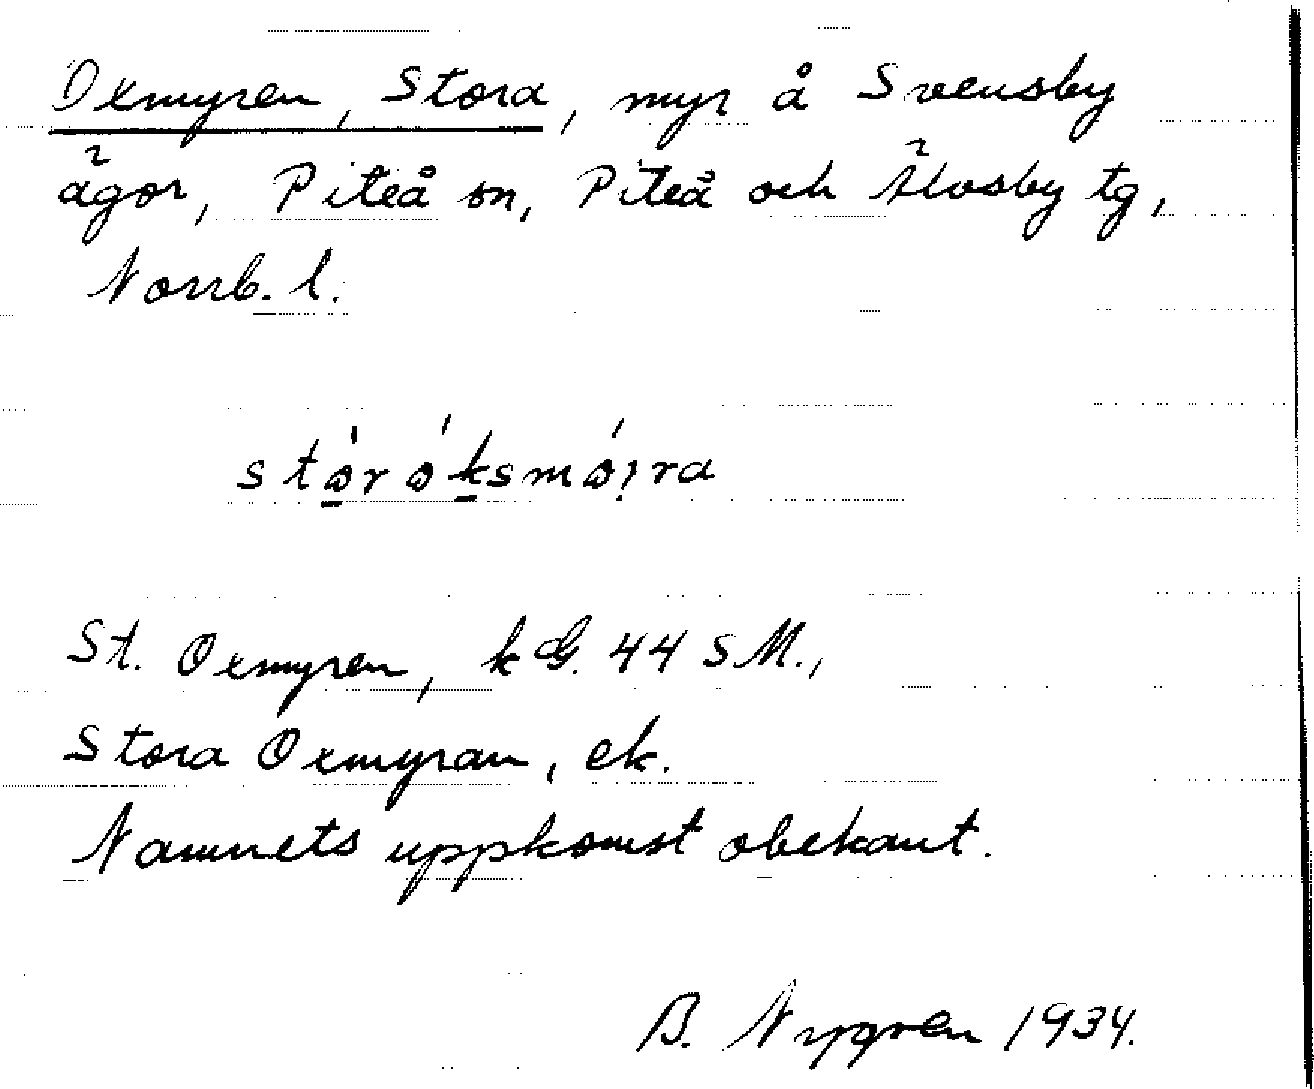 Oxmyren, Stora, myr å Svensby
ägor, Piteå sn, Piteå och Älvsby tg,
Norrb. l.
St. Oxmyren, kG. 44 SM.,
Stora Oxmyran, ek.
Namnets uppkomst obekant.
B. Nygren 1934.